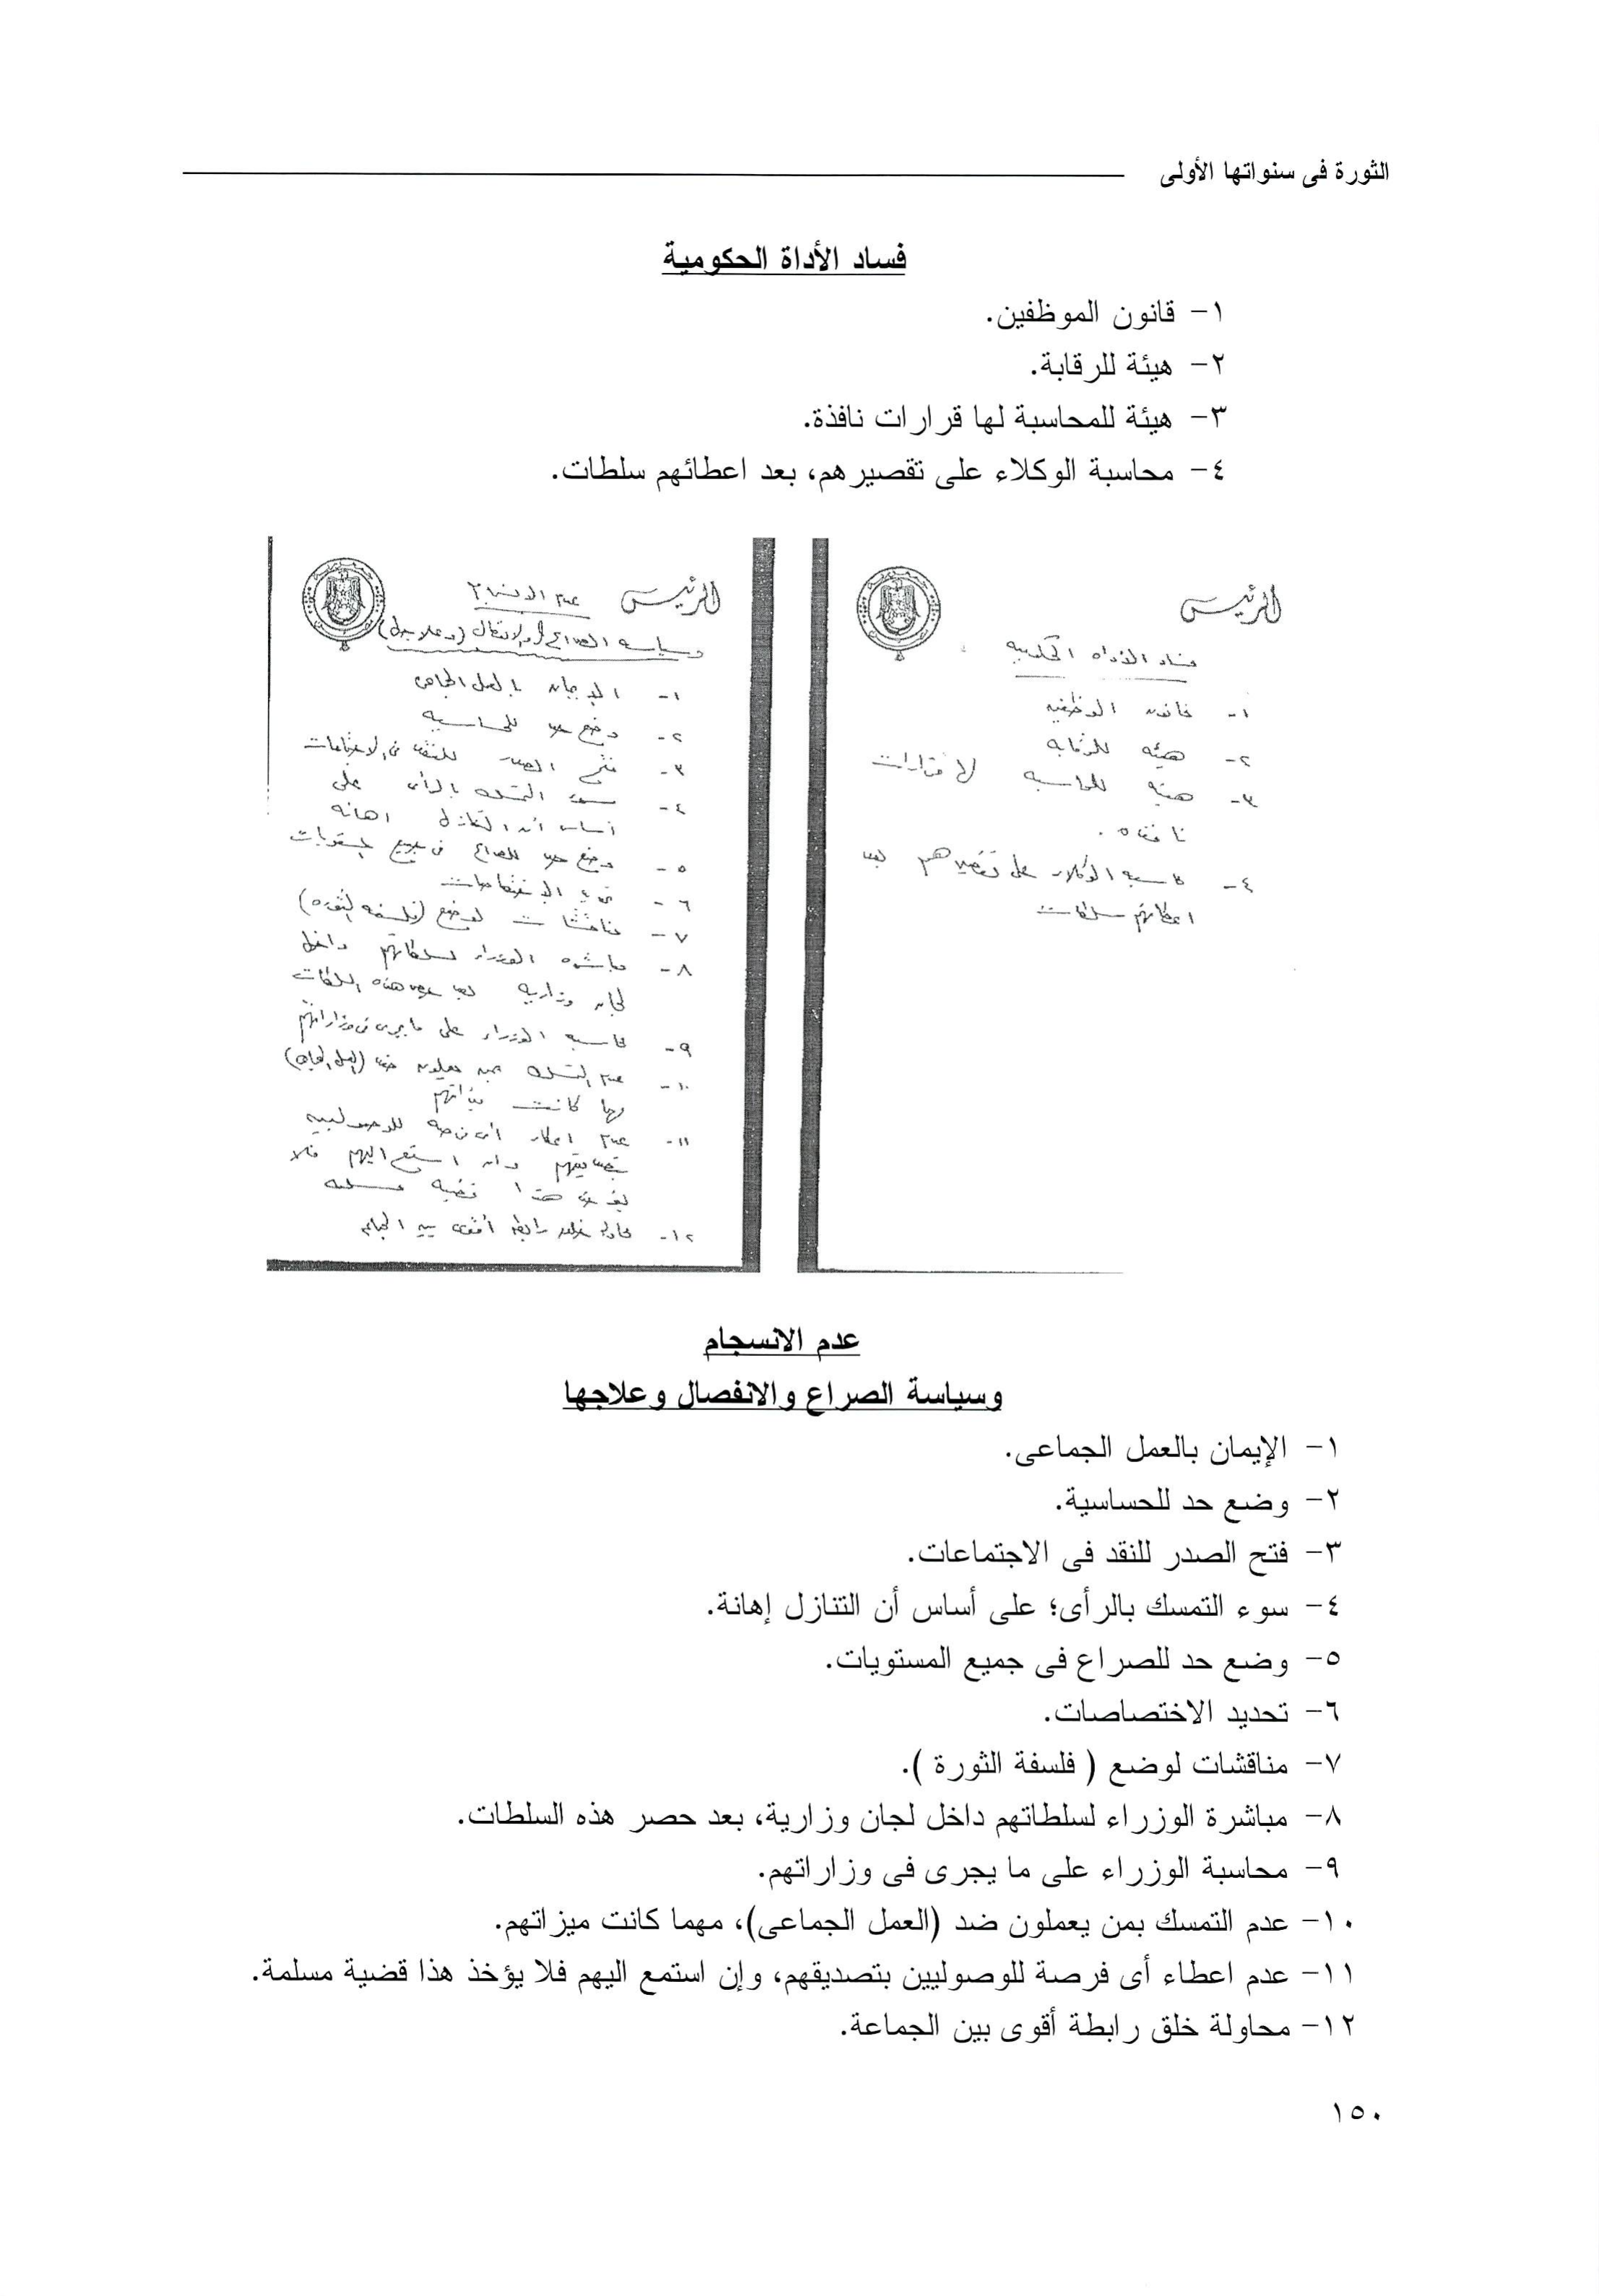 الثورة فى سنواتها الأولى
فساد الأداة الحكومية
١- قانون الموظفين.
٢- هيئة للرقابة.
٣- هيئة للمحاسبة لها قرارات نافذة.
٤- محاسبة الوكلاء على تقصيرهم، بعد اعطائهم سلطات.
الرئيس
فساد الأداه الحكوميه
١- قانون الموظفين
٢- هيئه للرقابه
٣- هيئه للمحاسبه لها قرارات
نافذه .
٤- محاسبه الوكلاء على تقصيرهم بعد
اعطائهم سلطات
الرئيس
عدم الانسجام
وسياسه الصراع والانفصال (وعلاجها)
١- الايمان بالعمل الجماعى
٢- وضع حد للحساسيه
٣- فتح الصدر للنقد فى الاجتماعات
٤- سوء التمسك بالرأى على
أساس أن التنازل اهانه
٥- وضع حد للصراع فى جميع المستويات
٦- تحديد الاختصاصات
٧- مناقشات لوضع (فلسفه الثوره)
٨- مباشره الوزراء لسلطاتهم داخل
لجان وزاريه بعد حصر هذه السلطات
٩- محاسبه الوزراء على ما يجرى فى وزاراتهم
١٠- عدم التمسك بمن يعملون ضد (العمل الجماعى)
مهما كانت ميزاتهم
١١- عدم اعطاء أى فرصه للوصوليين
بتصديقهم وان استمع اليهم فلا
يؤخذ هذا قضيه مسلمه
١٢- محاوله خلق رابطه أقوى بين الجماعه
عدم الانسجام
وسياسة الصراع والانفصال وعلاجها
١- الإيمان بالعمل الجماعى.
٢- وضع حد للحساسية.
٣- فتح الصدر للنقد فى الاجتماعات.
٤- سوء التمسك بالرأى؛ على أساس أن التنازل إهانة.
٥- وضع حد للصراع فى جميع المستويات.
٦- تحديد الاختصاصات.
٧- مناقشات لوضع ( فلسفة الثورة ).
٨- مباشرة الوزراء لسلطاتهم داخل لجان وزارية، بعد حصر هذه السلطات.
٩- محاسبة الوزراء على ما يجرى فى وزاراتهم.
١٠- عدم التمسك بمن يعملون ضد (العمل الجماعى)، مهما كانت ميزاتهم.
١١- عدم اعطاء أى فرصة للوصوليين بتصديقهم، وإن استمع اليهم فلا يؤخذ هذا قضية مسلمة.
١٢- محاولة خلق رابطة أقوى بين الجماعة.
١٥٠